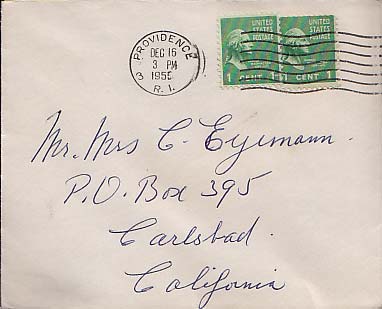 PROVIDENCE
DEC 16
3 PM
195
R. I.
3
UNITED STATES POSTAGE
1 CENT 1
UNITED STATES POSTAGE
1 CENT 1
Mr. Mrs C. Eyemann.
P.O. Box 395
Carlsbad.
California